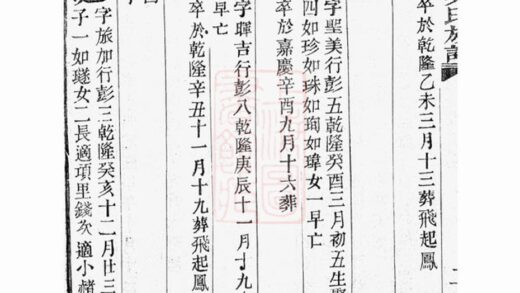 氏族譜
卒於乾隆乙未三月十三葬飛起鳳
字聖美行彭五乾隆癸酉三月初五生
四如珍如珠如珣如瑋女一早亡
卒於嘉慶辛酉九月十六葬
字暉吉行彭八乾隆庚辰十一月十九
早亡
卒於乾隆辛丑十一月十九葬飛起鳳
字旅加行彭三乾隆癸亥十二月廿三
子一如璲女二長適項里錢次適小